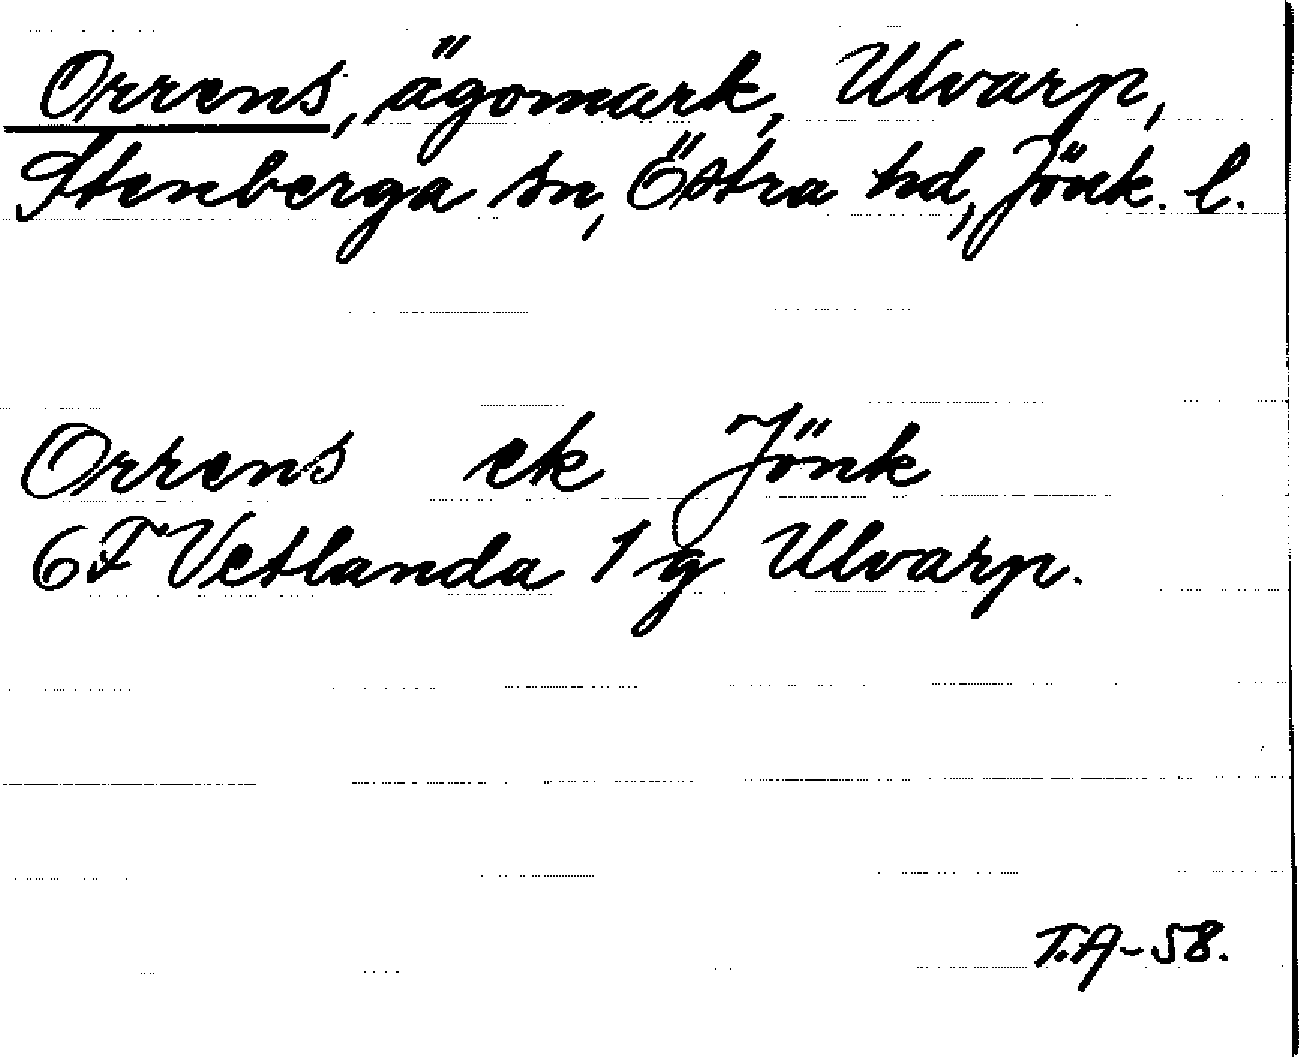 Orrens, ägomark, Ulvarp,
Stenberga sn, Östra hd, Jönk. l.
Orrens ek Jönk
6F Vetlanda 1 g Ulvarp.
T.A-58.